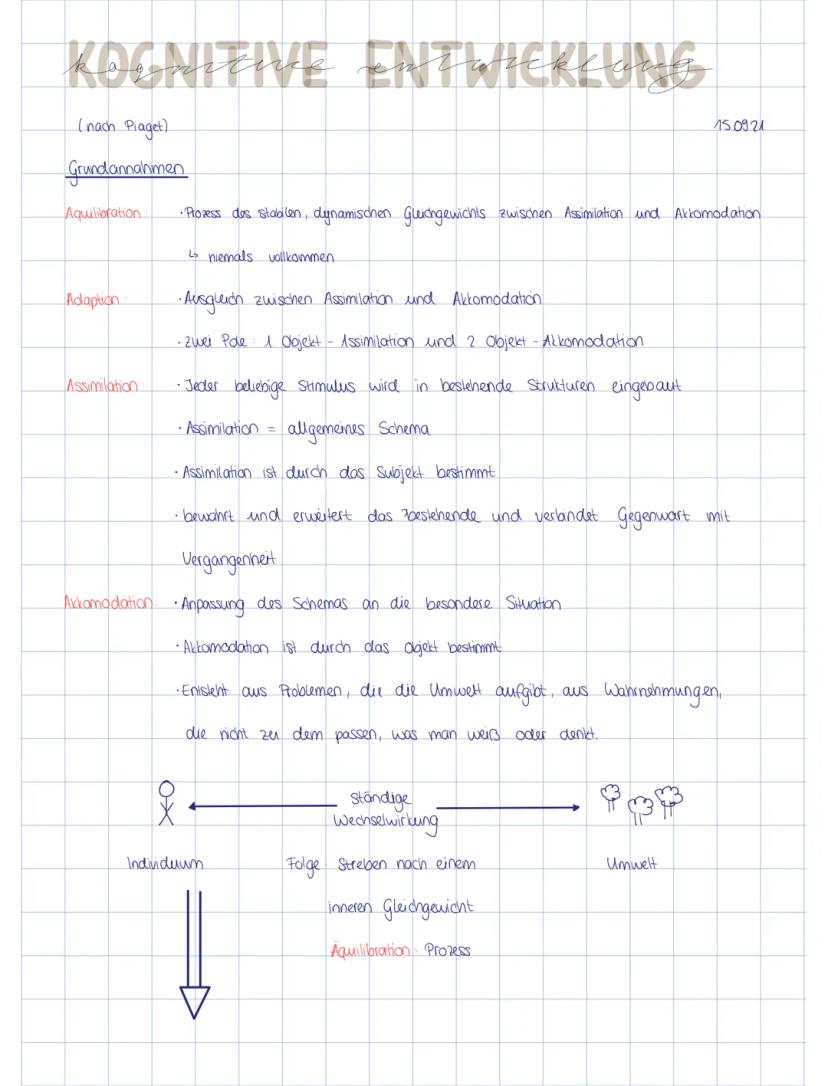 KOGNITIVE ENTWICKLUNG
kognitive entwicklung
(nach Piaget) 15.09.21
Grundannahmen
Äquilibration: · Prozess des stabilen, dynamischen Gleichgewichts zwischen Assimilation und Akkomodation
↳ niemals vollkommen
Adaption: · Ausgleich zwischen Assimilation und Akkomodation
· zwei Pole: 1 Objekt - Assimilation und 2 Objekt - Akkomodation
Assimilation: · Jeder beliebige Stimulus wird in bestehende Strukturen eingebaut
· Assimilation = allgemeines Schema
· Assimilation ist durch das Subjekt bestimmt
· bewahrt und erweitert das bestehende und verbindet Gegenwart mit
Vergangenheit
Akkomodation: · Anpassung des Schemas an die besondere Situation
· Akkomodation ist durch das Ogekt bestimmt
· Entsteht aus Problemen, die die Umwelt aufgibt, aus Wahrnehmungen,
die nicht zu dem passen, was man weiß oder denkt.
ständige
Wechselwirkung
Individuum Folge: Streben nach einem Umwelt
inneren Gleichgewicht
Äquilibration: Prozess